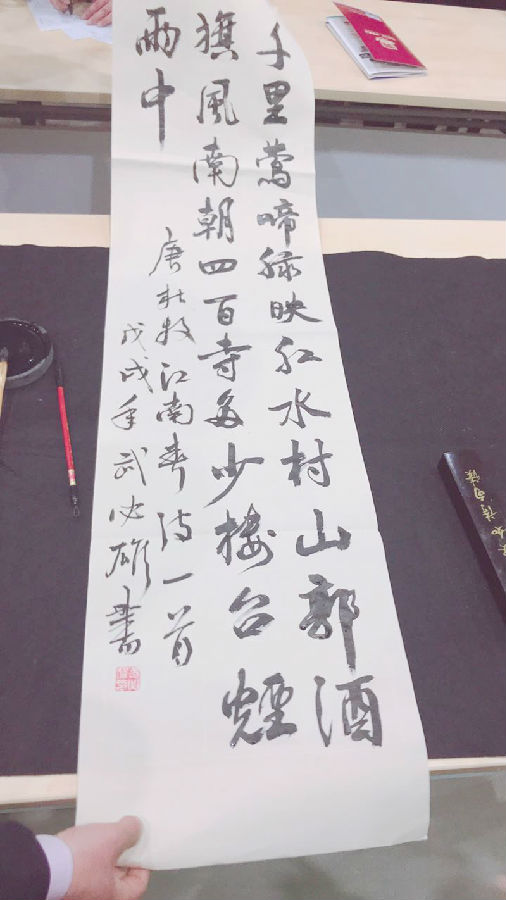 千里莺啼绿映红水村山郭酒
旗風南朝四百寺多少楼台煙
雨中
唐杜牧江南春诗一首
戊戌年武必雄書